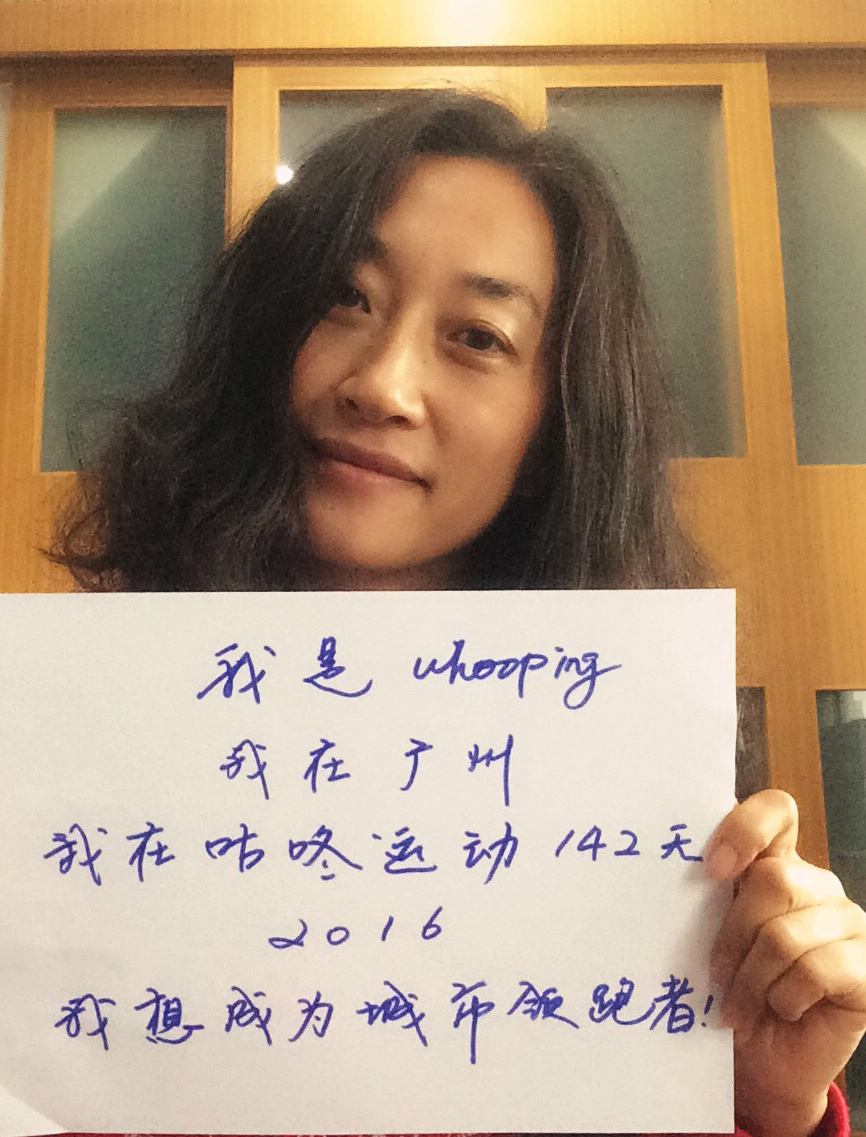 我是 whooping
我在广州
我在咕咚运动142天
2016
我想成为城市领跑者!